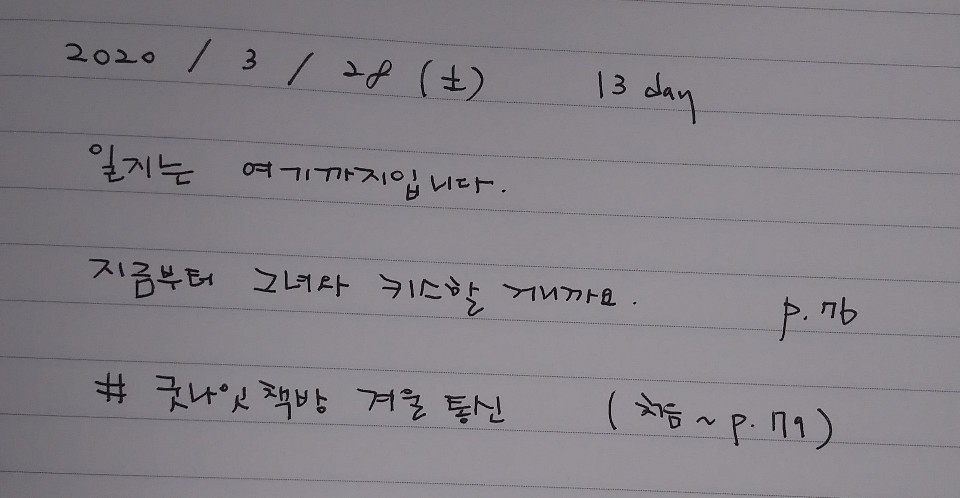 2020 / 3 / 28 (土) 13 day
일지는 여기까지입니다.
지금부터 그녀와 키스할 거니까요. p. 76
# 굿나잇책방 겨울 통신 (처음 ~ p. 79)